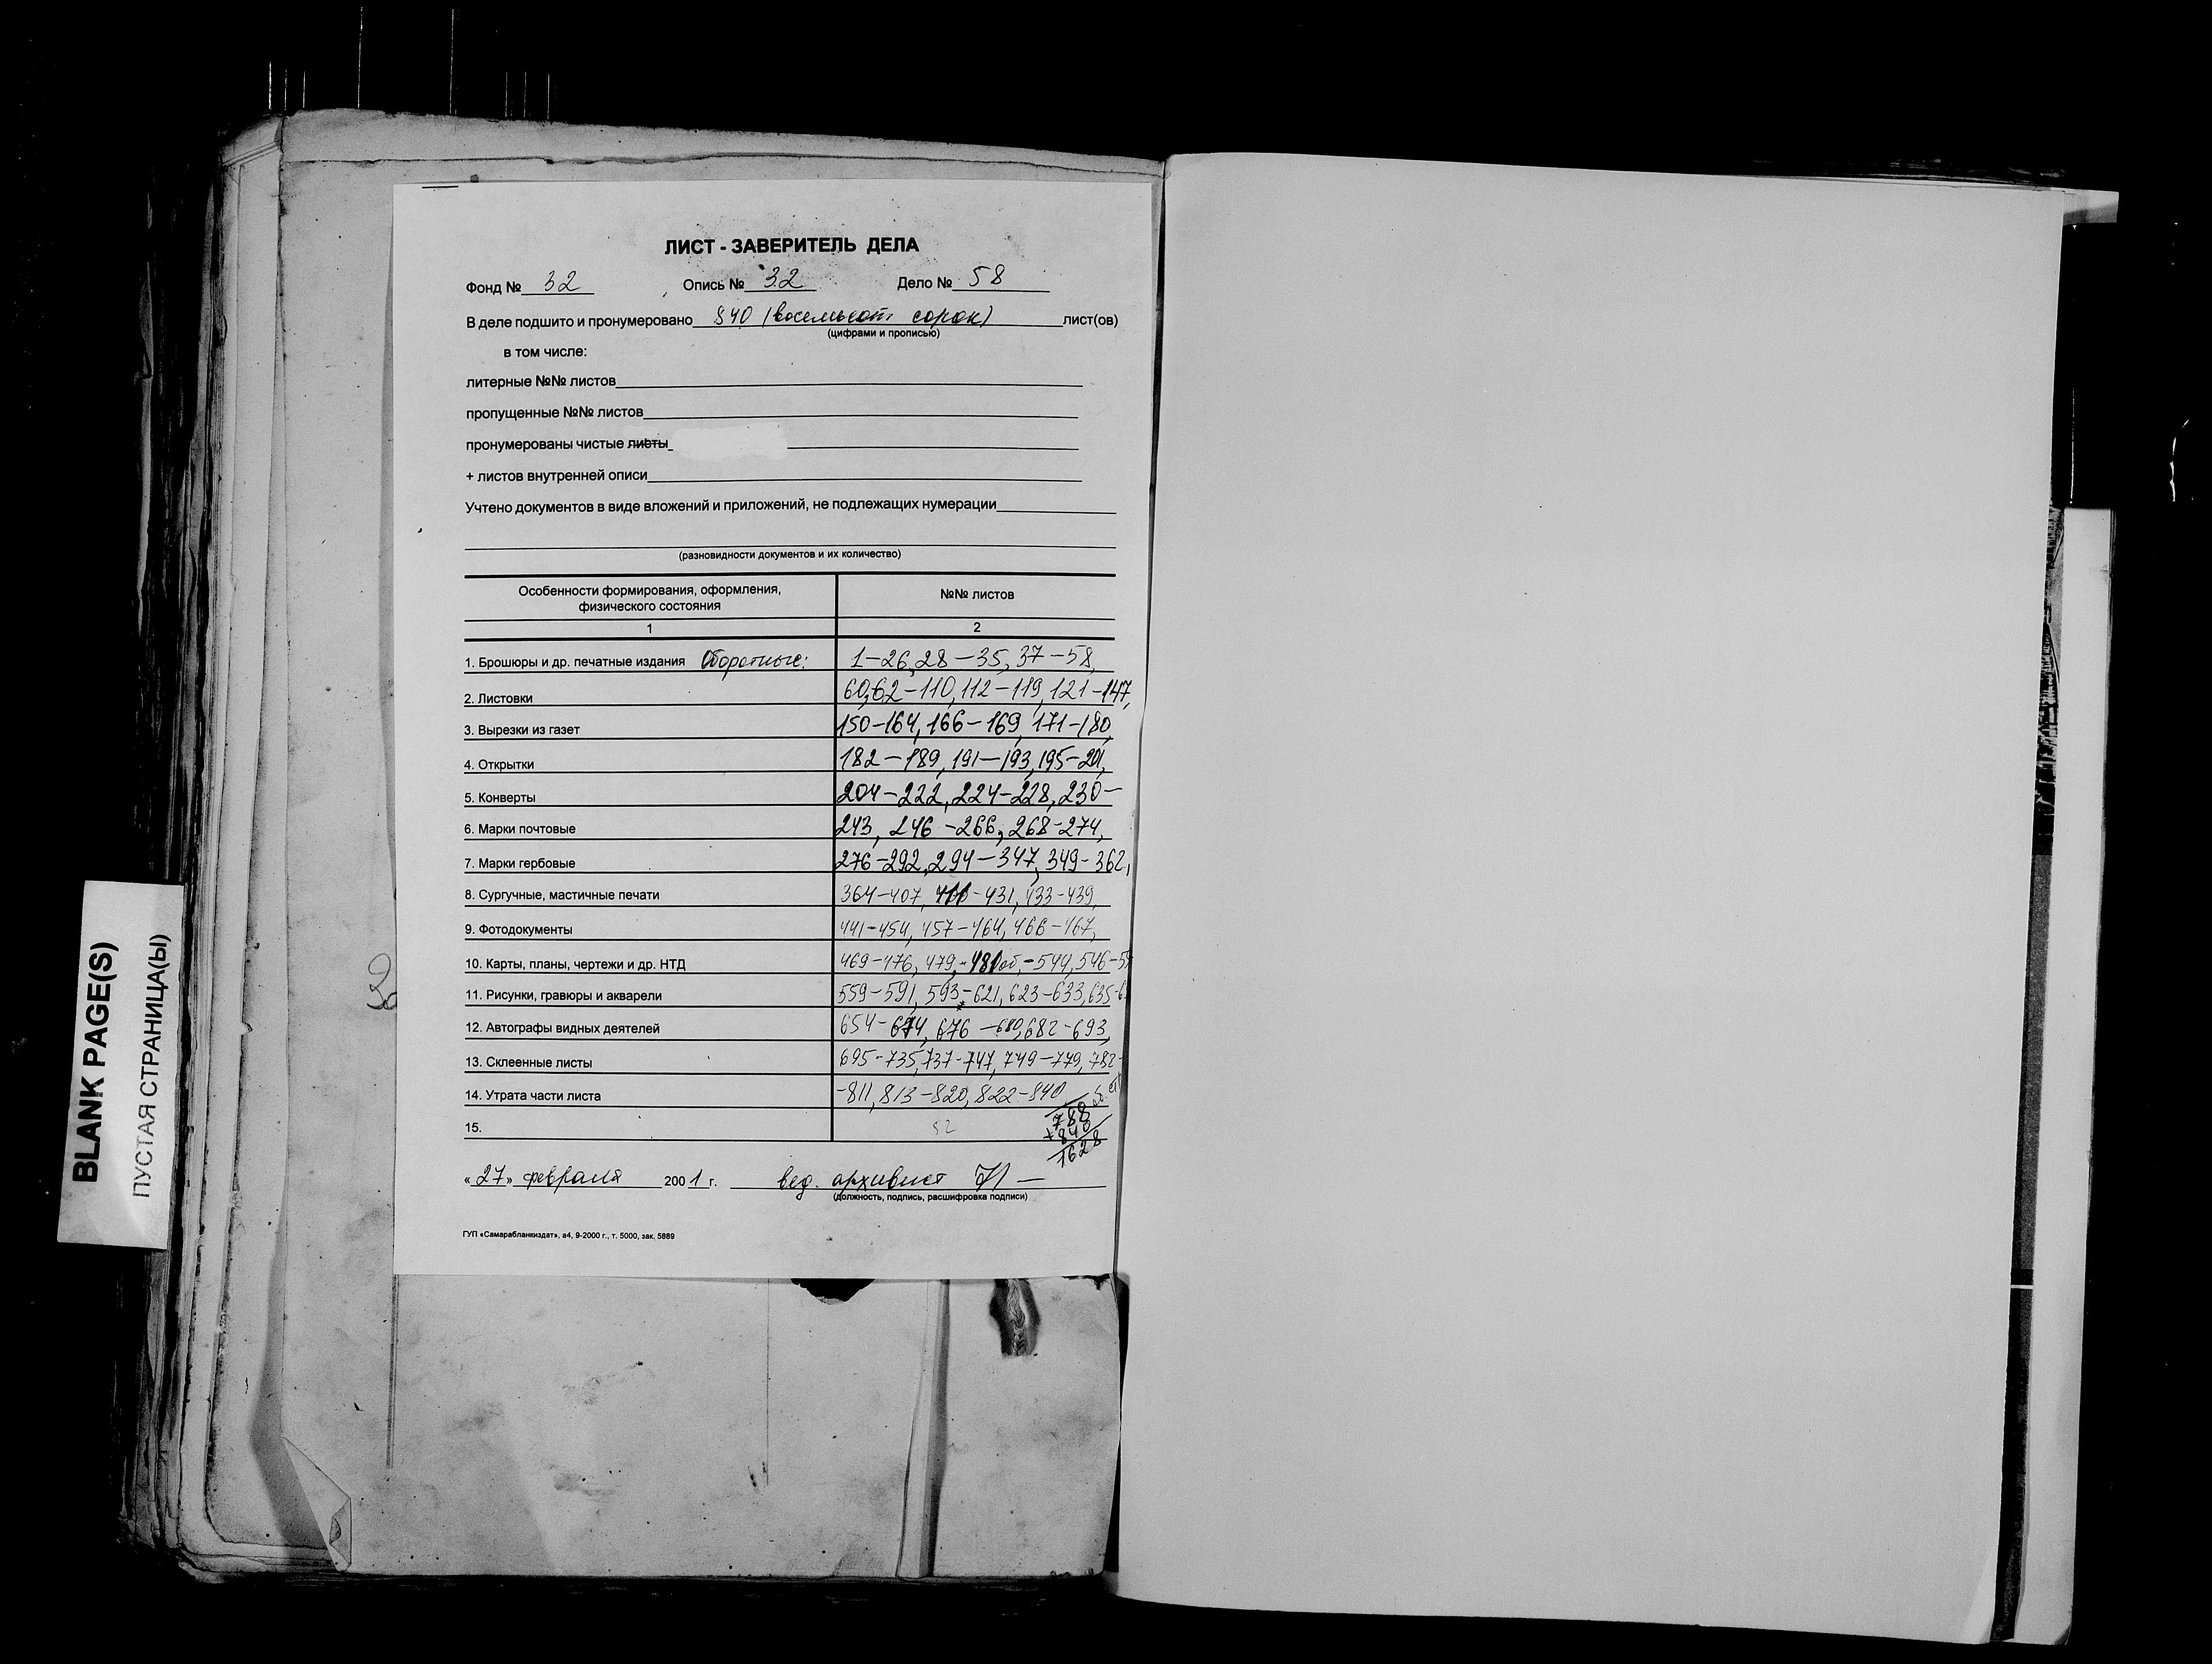 ЛИСТ - ЗАВЕРИТЕЛЬ ДЕЛА
Фонд № 32 Опись № 32 Дело № 58
В деле подшито и пронумеровано 840 (восемьсот сорок) лист(ов)
(цифрами и прописью)
в том числе:
литерные №№ листов
пропущенные №№ листов
пронумерованы чистые листы
+ листов внутренней описи
Учтено документов в виде вложений и приложений, не подлежащих нумерации
(разновидности документов и их количество)
Особенности формирования, оформления, физического состояния №№ листов
1 2
1. Брошюры и др. печатные издания Оборотные: 1-26, 28-35, 37-58,
2. Листовки 60,62-110, 112-119, 121-147,
3. Вырезки из газет 150-164, 166-169, 171-180,
4. Открытки 182-189, 191-193, 195-201,
5. Конверты 204-222, 224-228, 230-
6. Марки почтовые 243, 246-266, 268-274,
7. Марки гербовые 276-292, 294-347, 349-362,
8. Сургучные, мастичные печати 364-407, -431, 433-439,
9. Фотодокументы 441-454, 457-464, 466-467,
10. Карты, планы, чертежи и др. НТД 469-476, 479, -481об, -544, 546-
11. Рисунки, гравюры и акварели 559-591, 593-621, 623-633, 635-
12. Автографы видных деятелей 654-674, 676-680, 682-693,
13. Склеенные листы 695-735, 737-747, 749-779, 782-
14. Утрата части листа -811, 813-820, 822-840
15. 52
788
+840
1628
«27» февраля 2001 г. вед. архивист
(должность, подпись, расшифровка подписи)
ГУП «Самарабланкиздат», а4, 9-2000 г., т. 5000, зак. 5889
BLANK PAGE(S)
ПУСТАЯ СТРАНИЦА(Ы)